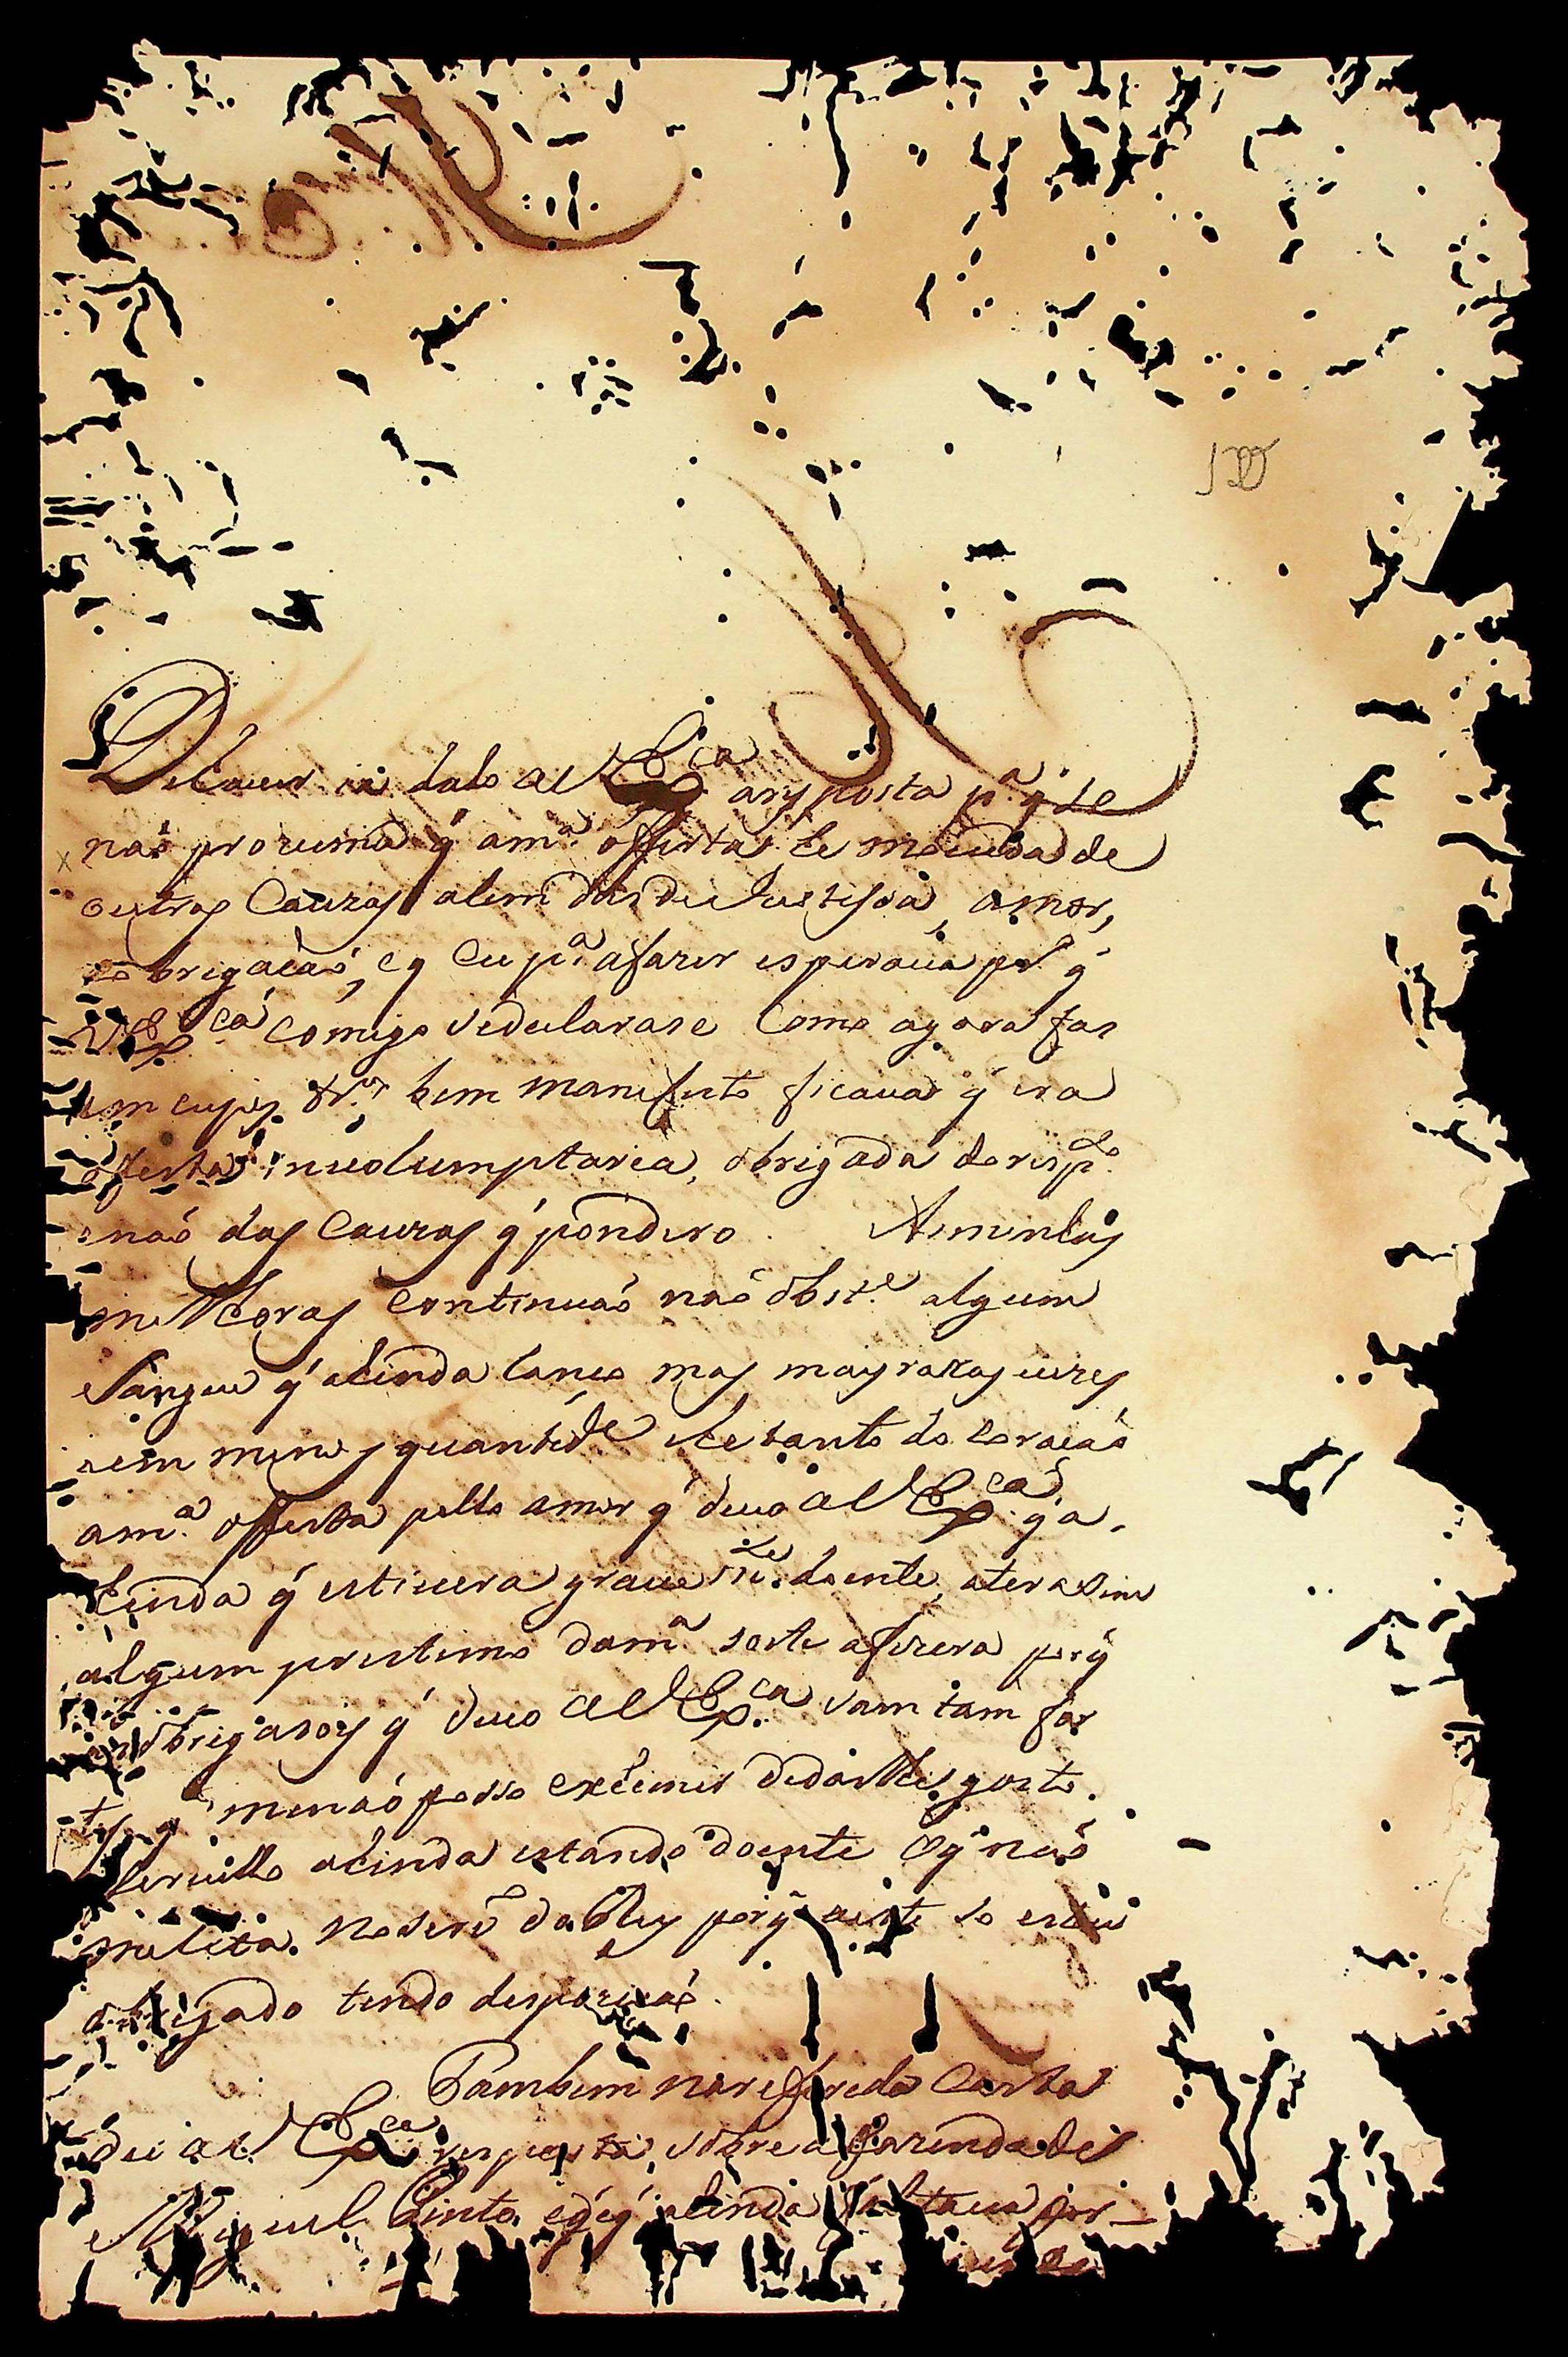 De hauer ia dado a V Ex.ca a resposta p.a q̃ se
naõ prezuma q̃ a m.a offerta he mouida de
outras Cauzas alem das de Justissa, amor,
e obrigacaõ, e q eu p.a a fazer esperaua por q̃
V Ex.ca comigo se declarase Como agora fas
em cujos bem manifesto ficaua q̃ era
offerta inuolumptaria, obrigada do resp.to
e naõ das Cauzas q̃ pondero. As minhas
melhoras Continuaõ naõ obst.e algum
Sangue q̃ ahinda lanco mas mais raras uezes
e em menos quantid.e he tanto do Coracaõ
a m.a offerta pello amor q̃ deuo a V Ex.ca q̃ a
hinda q̃ estiuera graue m.te doente, a ter asim
algum prestimo da m.a sorte a fizera porq̃
as obrigasois q̃ deuo a V Ex.ca sam tam for
tes q̃ me naõ posso eximir de dar lhe gosto
seruillo ahinda estando doente O q̃ naõ
melita. no seru.o da ElRey porq̃ neste so estou
obrigado tendo desposicaõ.
Tambem na referida Carta
dei a V Ex.ca resposta, sobre a fazenda de
Miguel Pinto, e q̃ ahinda faltaua por